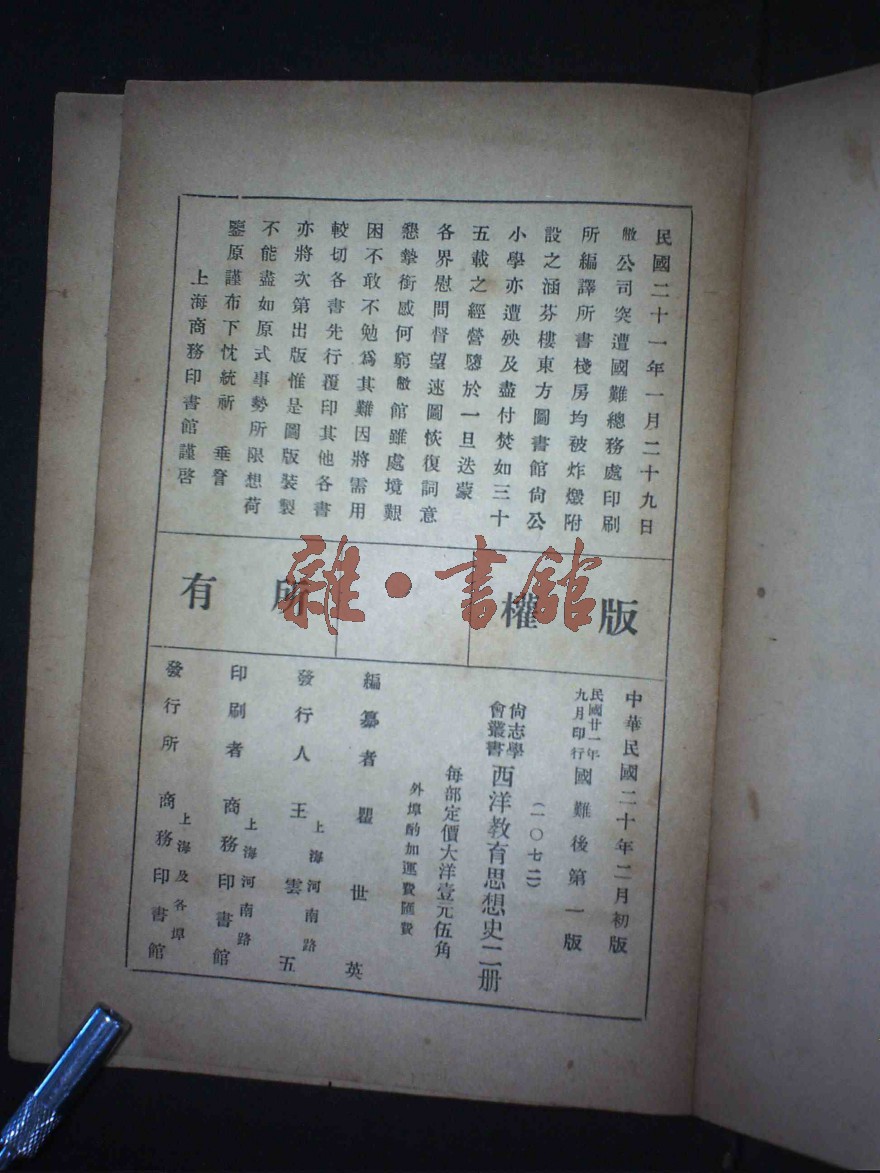 民國二十一年一月二十九日
敝公司突遭國難總務處印刷
所編譯所書棧房均被炸燬附
設之涵芬樓東方圖書館尙公
小學亦遭殃及盡付焚如三十
五載之經營隳於一旦迭蒙
各界慰問督望速圖恢復詞意
懇摯銜感何窮敝館雖處境艱
困不敢不勉爲其難因將需用
較切各書先行覆印其他各書
亦將次第出版惟是圖版裝製
不能盡如原式事勢所限想荷
鑒原謹布下忱統祈 垂詧
上海商務印書館謹啓
版權所有
雜·書館
中華民國二十年二月初版
民國廿一年九月印行國難後第一版
(一〇七二)
尙志學會叢書西洋教育思想史二册
每部定價大洋壹元伍角
外埠酌加運費匯費
編纂者 瞿世英
發行人 王雲五
上海河南路
印刷者 商務印書館
上海河南路
發行所 商務印書館
上海及各埠